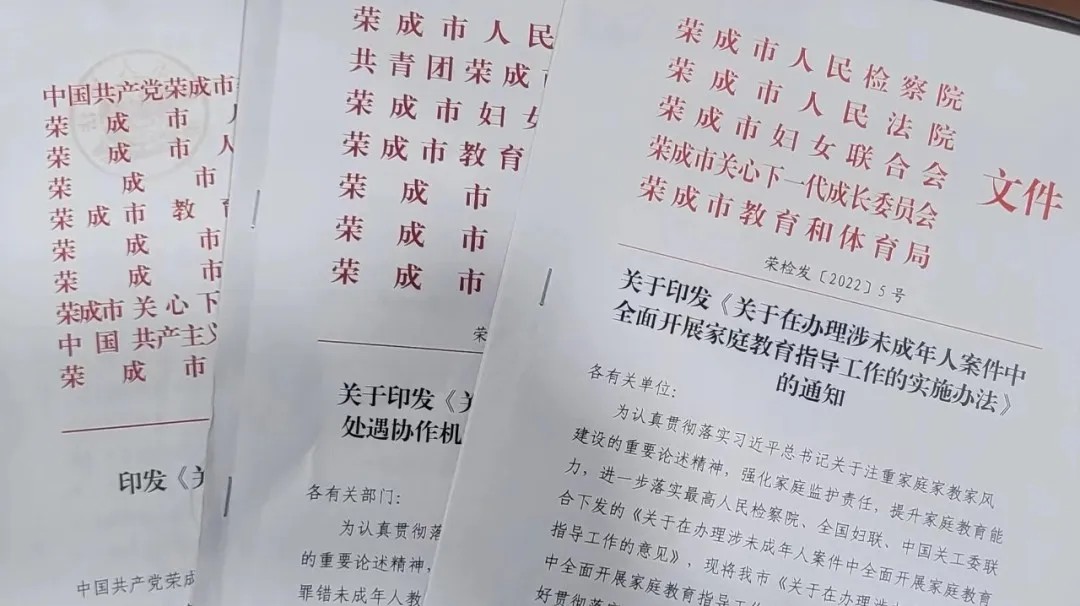 中国共产党荣成市
荣成市
荣成市人
荣成市
荣成市教育
荣成市
荣成市
荣成市关心下
中国共产主义
荣成市
印发《关
中国共产党荣成
荣成市人民
共青团荣成
荣成市妇女
荣成市教育
荣成市
荣成市
荣成市
荣
关于印发《关
处遇协作机
各有关部门：
为认真贯彻落
的重要论述精神，
罪错未成年人教
荣成市人民检察院
荣成市人民法院
荣成市妇女联合会
荣成市关心下一代成长委员会
荣成市教育和体育局
文件
荣检发〔2022〕5号
关于印发《关于在办理涉未成年人案件中
全面开展家庭教育指导工作的实施办法》
的通知
各有关单位：
为认真贯彻落实习近平总书记关于注重家庭家教家风
建设的重要论述精神，强化家庭监护责任，提升家庭教育能
力，进一步落实最高人民检察院、全国妇联、中国关工委联
合下发的《关于在办理涉未成年人案件中全面开展家庭教育
指导工作的意见》，现将我市《关于在办理涉未成年人案件
中全面开展家庭教育指导工
好贯彻落实